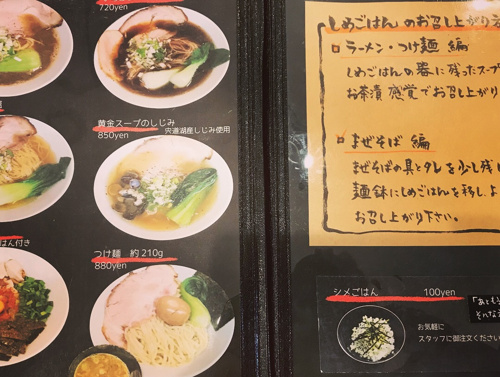 720yen
黄金スープのしじみ
850yen 宍道湖産しじみ使用
つけ麺 約210g
880yen
はん付き
しめごはんのお召し上がり
ラーメン・つけ麺 編
しめごはんの器に残ったスープ
お茶漬感覚でお召し上がり
まぜそば 編
まぜそばの具とタレを少し残し
麺鉢にしめごはんを移し、よ
お召し上がり下さい。
シメごはん 100yen
お気軽に
スタッフに御注文ください